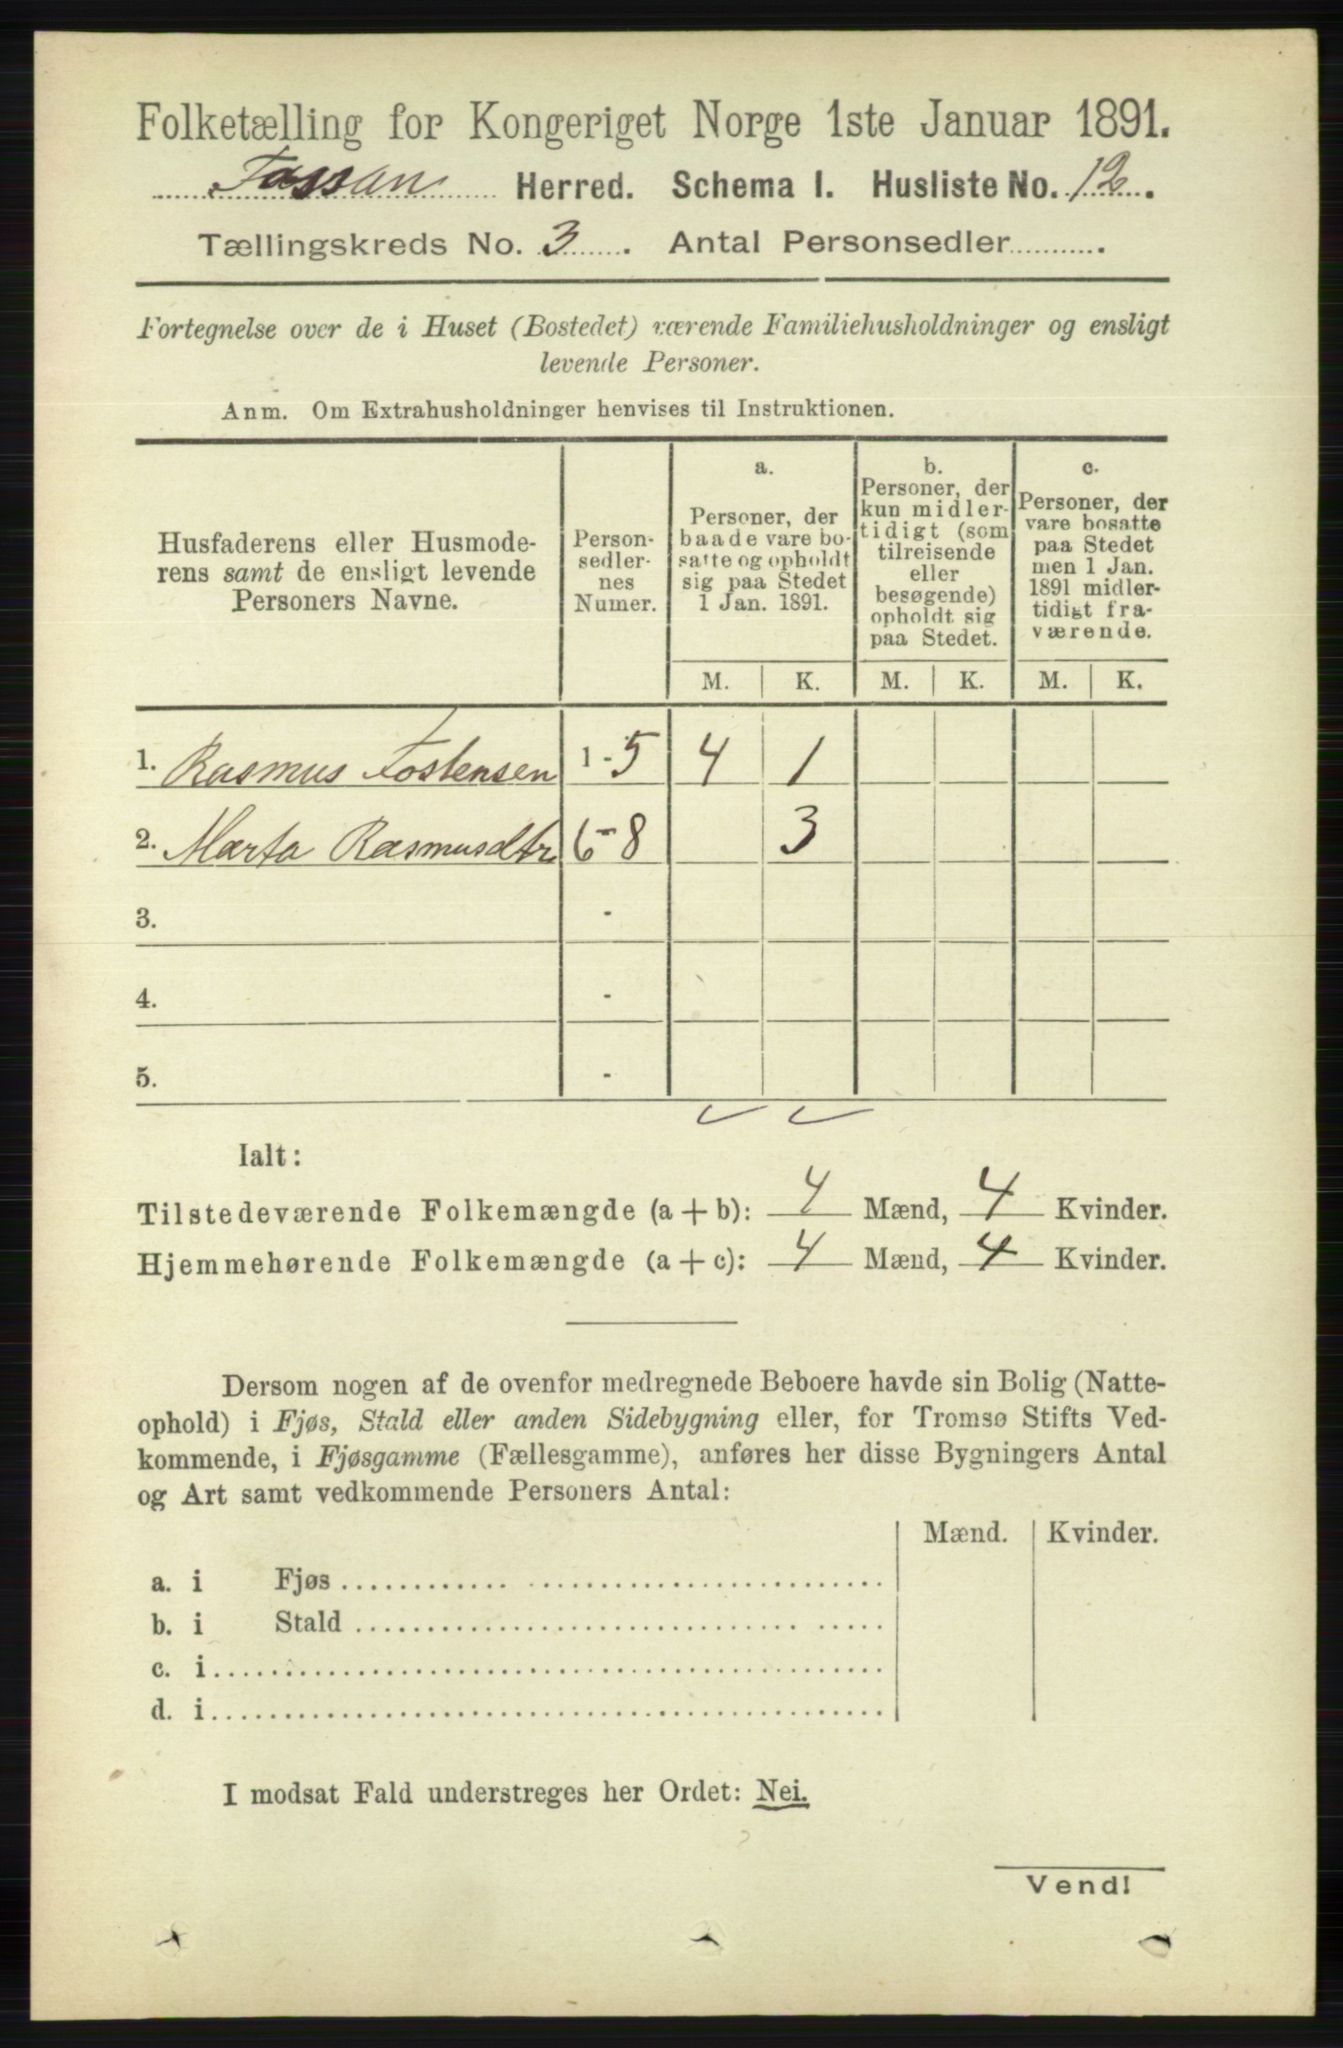 Folketælling for Kongeriget Norge 1ste Januar 1891.
Fossan Herred. Schema I. Husliste No. 12.
Tællingskreds No. 3. Antal Personsedler
Fortegnelse over de i Huset (Bostedet) værende Familiehusholdninger og ensligt
levende Personer.
Anm. Om Extrahusholdninger henvises til Instruktionen.
Husfaderens eller Husmode-
rens samt de ensligt levende
Personers Navne.
Person-
sedler-
nes
Numer.
a.
Personer, der
baade vare bo-
satte og opholdt
sig paa Stedet
1 Jan. 1891.
b.
Personer, der
kun midler-
tidigt (som
tilreisende
eller
besøgende)
opholdt sig
paa Stedet.
c.
Personer, der
vare bosatte
paa Stedet
men 1 Jan.
1891 midler-
tidigt fra-
værende.
M. K. M. K. M. K.
1. Rasmus Tostensen 1-5 4 1
2. Marta Rasmusdtr 6-8 3
3. -
4. -
5. -
Ialt:
Tilstedeværende Folkemængde (a + b): 4 Mænd, 4 Kvinder.
Hjemmehørende Folkemængde (a + c): 4 Mænd, 4 Kvinder.
Dersom nogen af de ovenfor medregnede Beboere havde sin Bolig (Natte-
ophold) i Fjøs, Stald eller anden Sidebygning eller, for Tromsø Stifts Ved-
kommende, i Fjøsgamme (Fællesgamme), anføres her disse Bygningers Antal
og Art samt vedkommende Personers Antal:
Mænd. Kvinder.
a. i Fjøs
b. i Stald
c. i
d. i
I modsat Fald understreges her Ordet: Nei.
Vend!